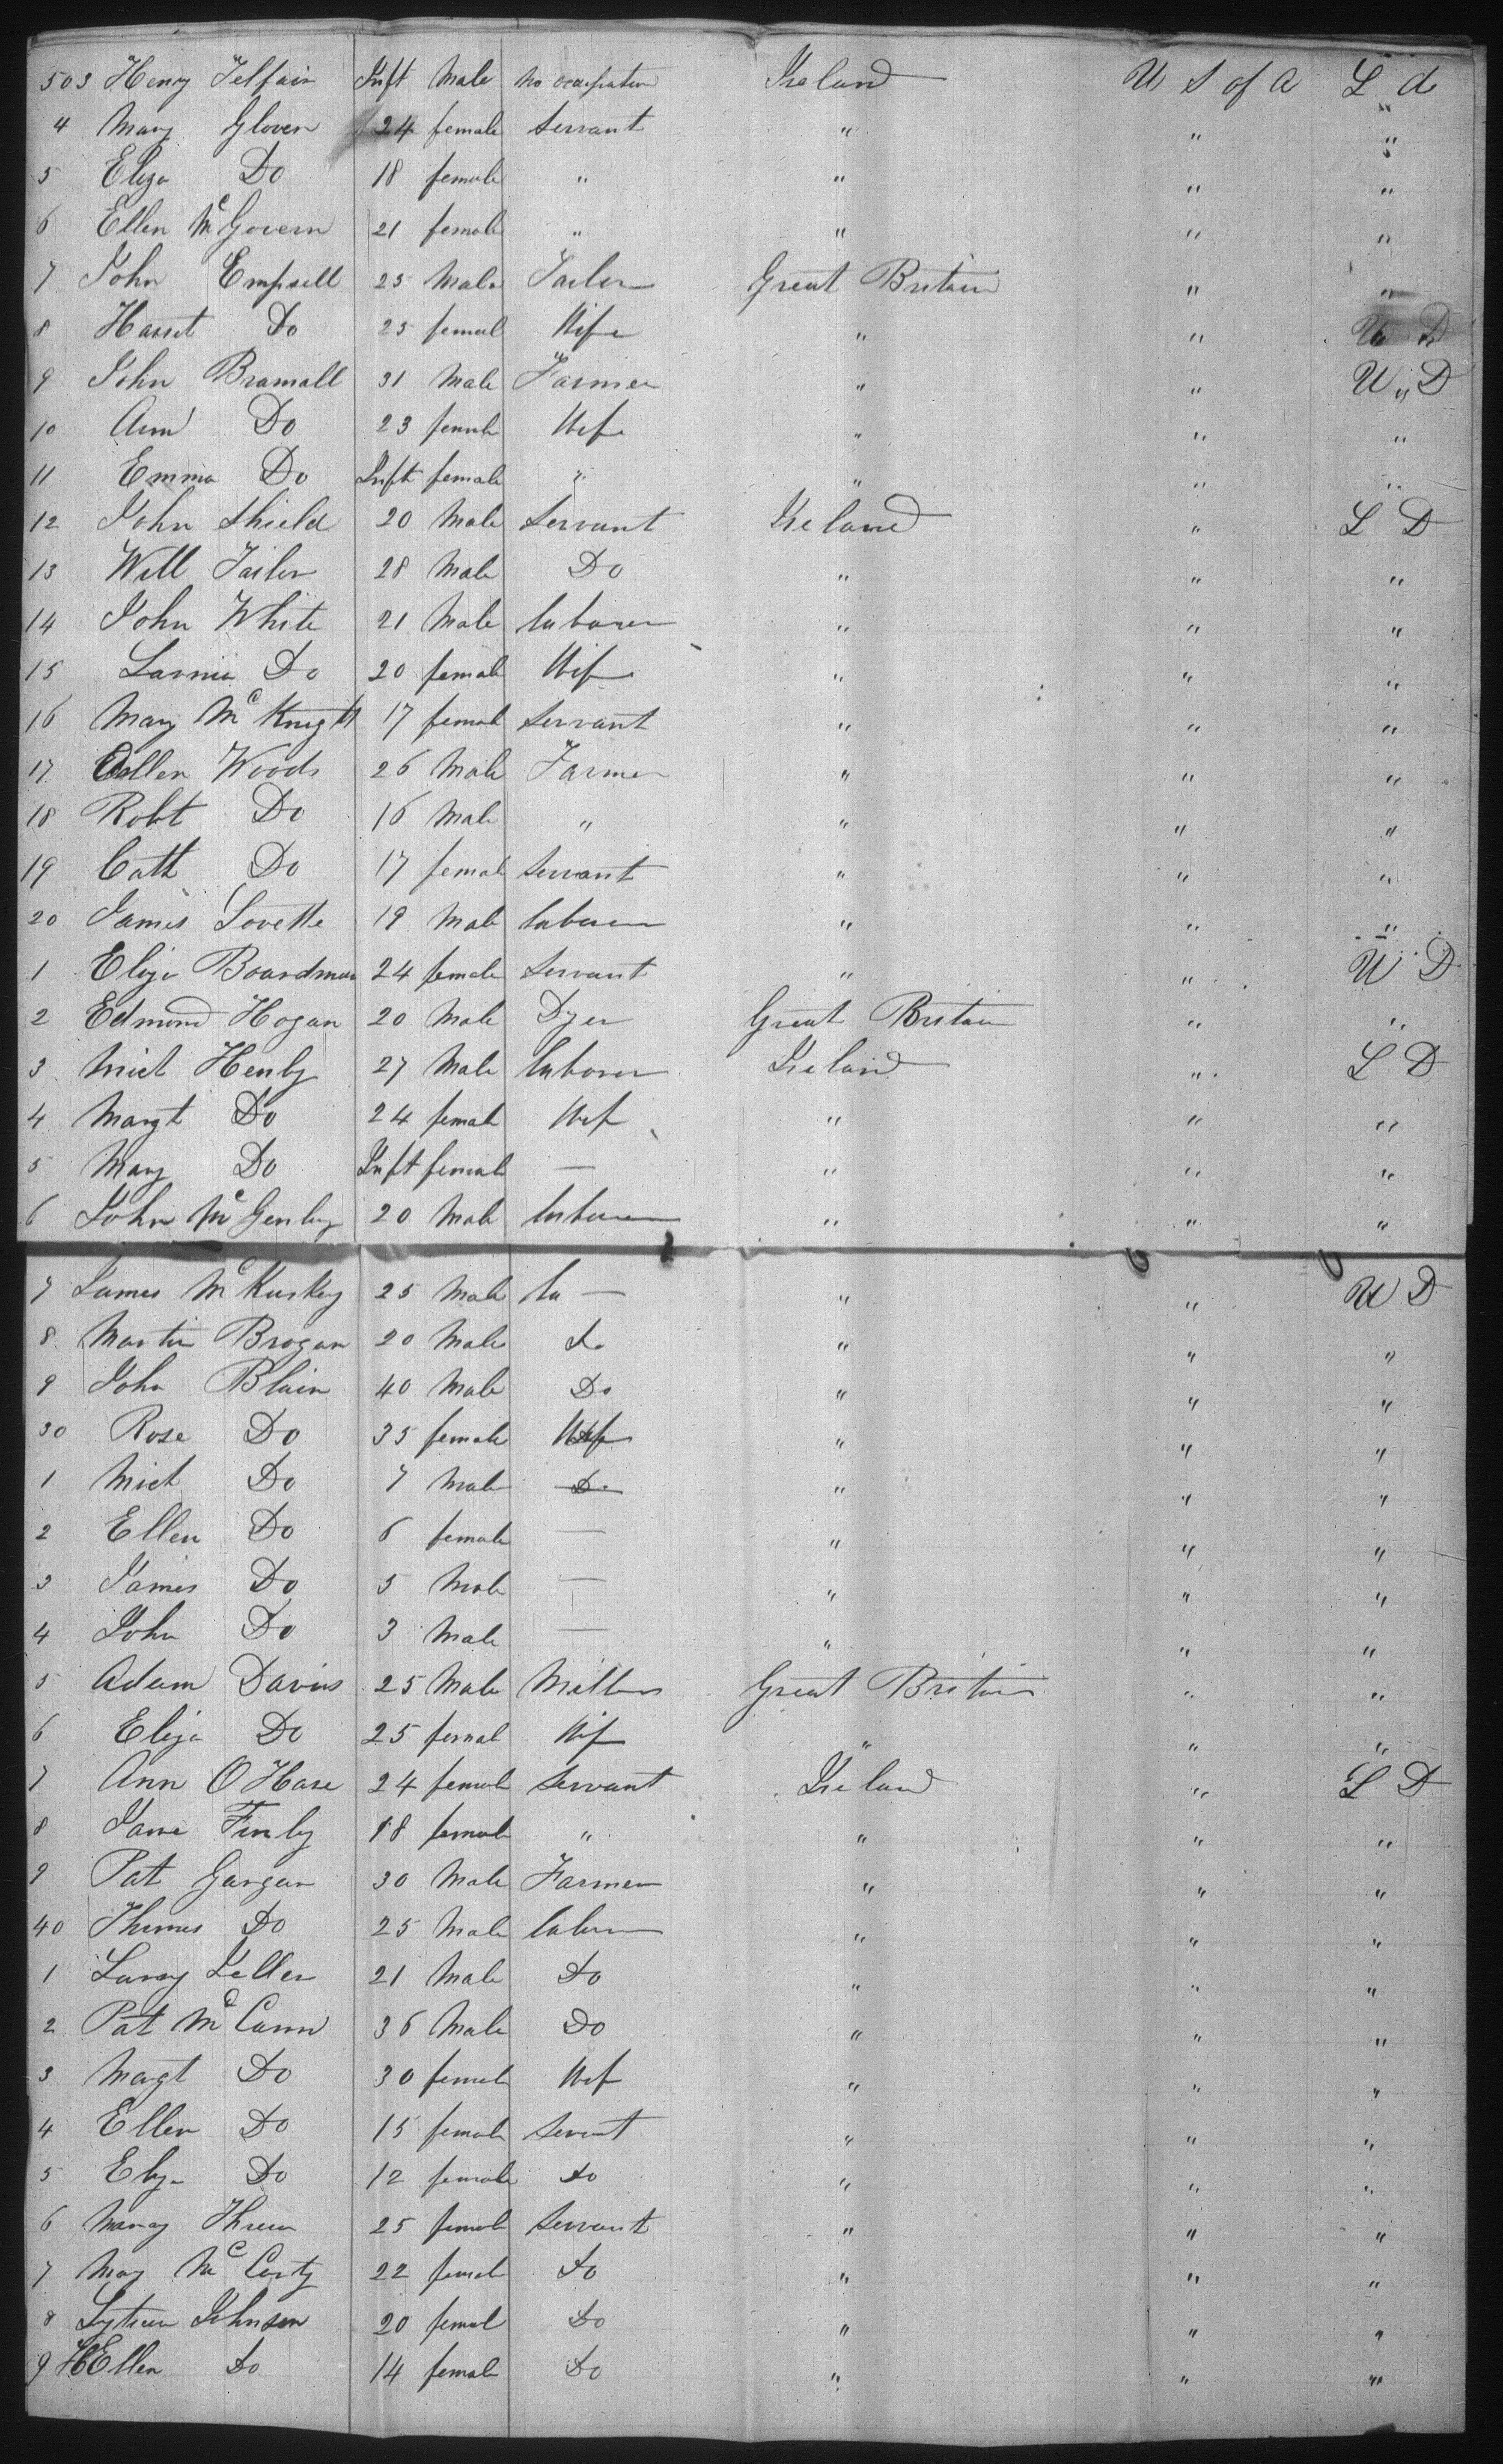 503 Henry Telfair Inft Male no occupation Ireland U S of A L d
4 Mary Glover 24 female Servant " " "
5 Eliza Do 18 female " " " "
6 Ellen McGovern 21 female " " " "
7 John Empsell 25 Male Tailor Great Britain " "
8 Harriet Do 25 femal Wife " " U D
9 John Bramall 31 Male Farmer " " U " D
10 Ann Do 23 female Wife " " "
11 Emma Do Inft female " " " "
12 John Shield 20 Male Servant Ireland " L D
13 Will Tailor 28 Male Do " " "
14 John White 21 Male laborer " " "
15 Do 20 female Wife " " "
16 Mary Mc Knight 17 female Servant " " "
17 Allen Woods 26 Male Farmer " " "
18 Robt Do 16 Male " " " "
19 Cath Do 17 female Servant " " "
20 James Lovette 19 Male laborer " " "
1 Eliza Boardman 24 female Servant " " U D
2 Edmond Hogan 20 Male Dyer Great Britain " "
3 Mich Henly 27 Male laborer Ireland " L D
4 Margt Do 24 female Wife " " "
5 Mary Do Inft female — " " "
6 John McGenley 20 Male laborer " " "
7 James McKuskey 25 Male la — " " U D
8 Martin Brogan 20 Male Do " " "
9 John Blain 40 Male Do " " "
30 Rose Do 35 female Wife " " "
1 Mich Do 7 Male Do " " "
2 Ellen Do 6 female — " " "
3 James Do 5 Male — " " "
4 John Do 3 Male — " " "
5 Adam Davis 25 Male Miller Great Britain " "
6 Eliza Do 25 femal Wife " " "
7 Ann O Hare 24 female Servant Ireland " L D
8 Jane Finly 18 female " " " "
9 Pat Gargan 30 Male Farmer " " "
40 Thomas Do 25 Male laborer " " "
1 21 Male Do " " "
2 Pat McCann 36 Male Do " " "
3 Margt Do 30 female Wife " " "
4 Ellen Do 15 female Servant " " "
5 Eliza Do 12 female do " " "
6 25 female Servant " " "
7 Mary McCarty 22 female do " " "
8 Johnson 20 femal Do " " "
9 Ellen Do 14 female Do " " "